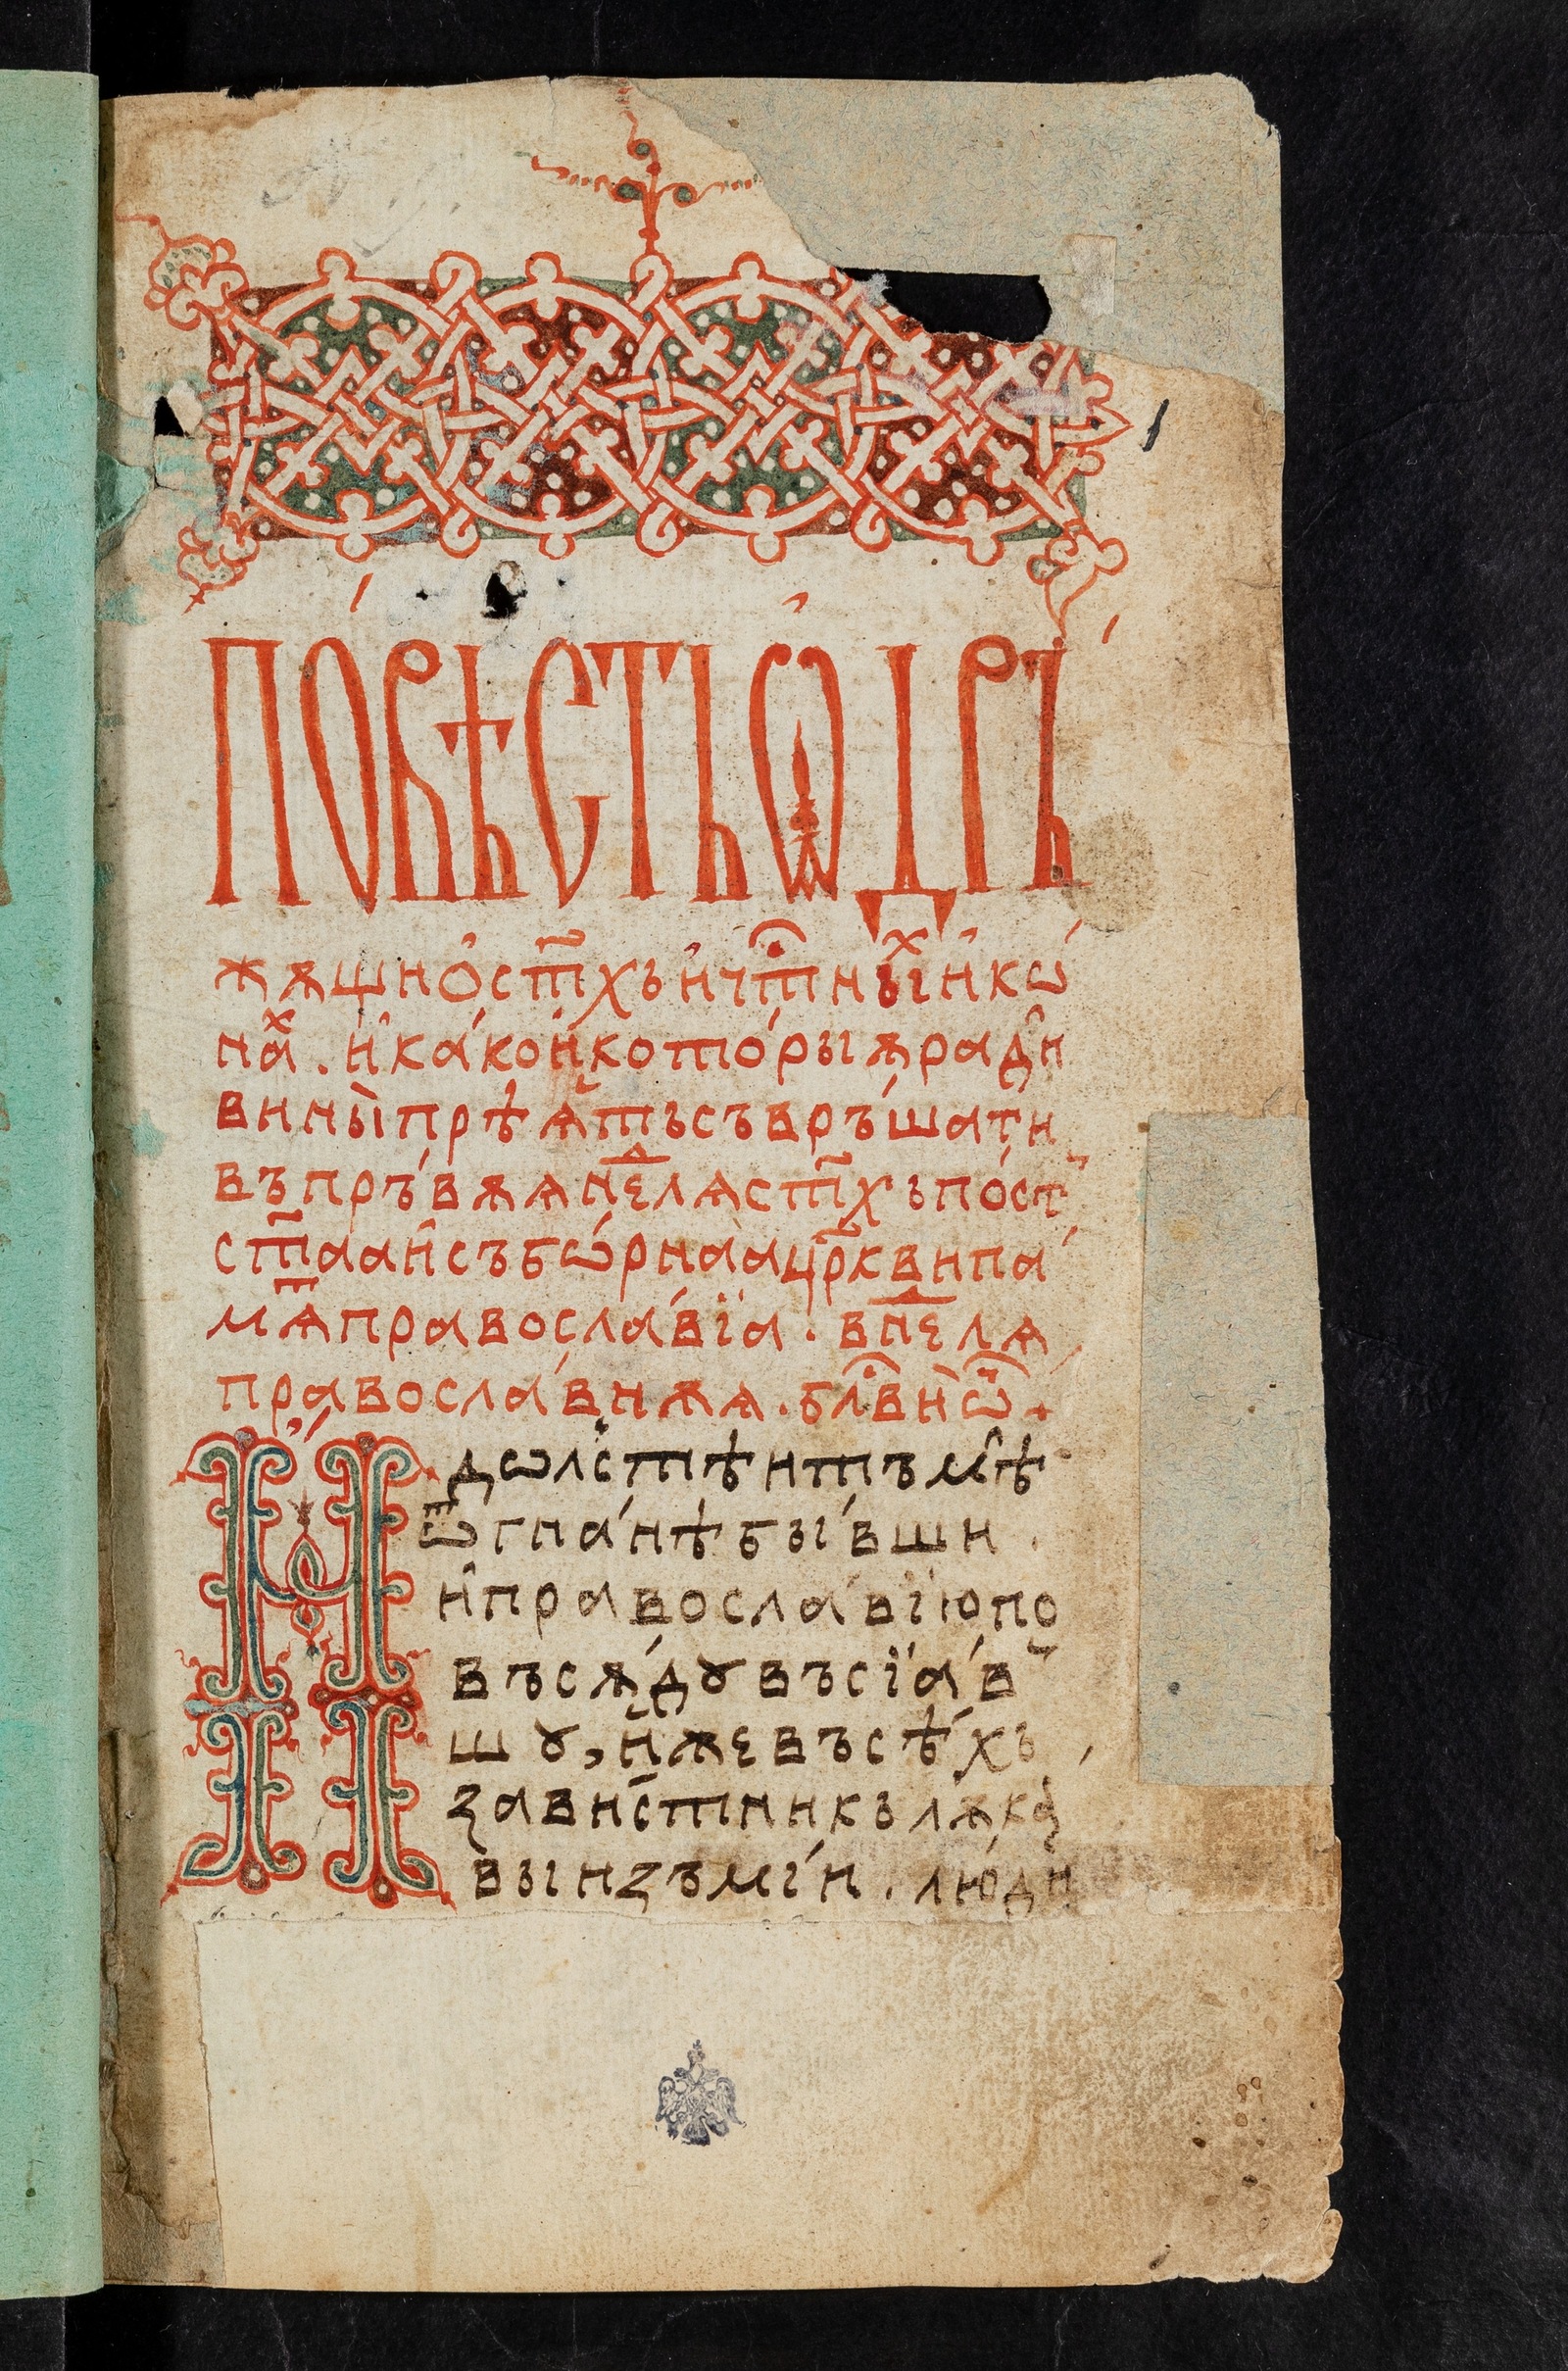 повѣсть ѡ дръ
жѫщи о ст҃хь и чт҃ныⷯи ико
наⷯ. и како и которыѧ ради
вины прѣѧть съвръшати
въ пръвѫѧ нⷣелѧ ст҃хь пост
ст҃аа и съборнаа цр҃кви па
мѧⷮ православїа. в нⷣелѧ
православнѫѧ. бл҃ви ѿ.
Идолстѣи тъмѣ
ѿгнанѣ бывши.
и православїю по
въсѫдꙋ въсїав
шꙋ, иже въсѣхь
завистникь лѫка
вы и зъмїи. люди
1